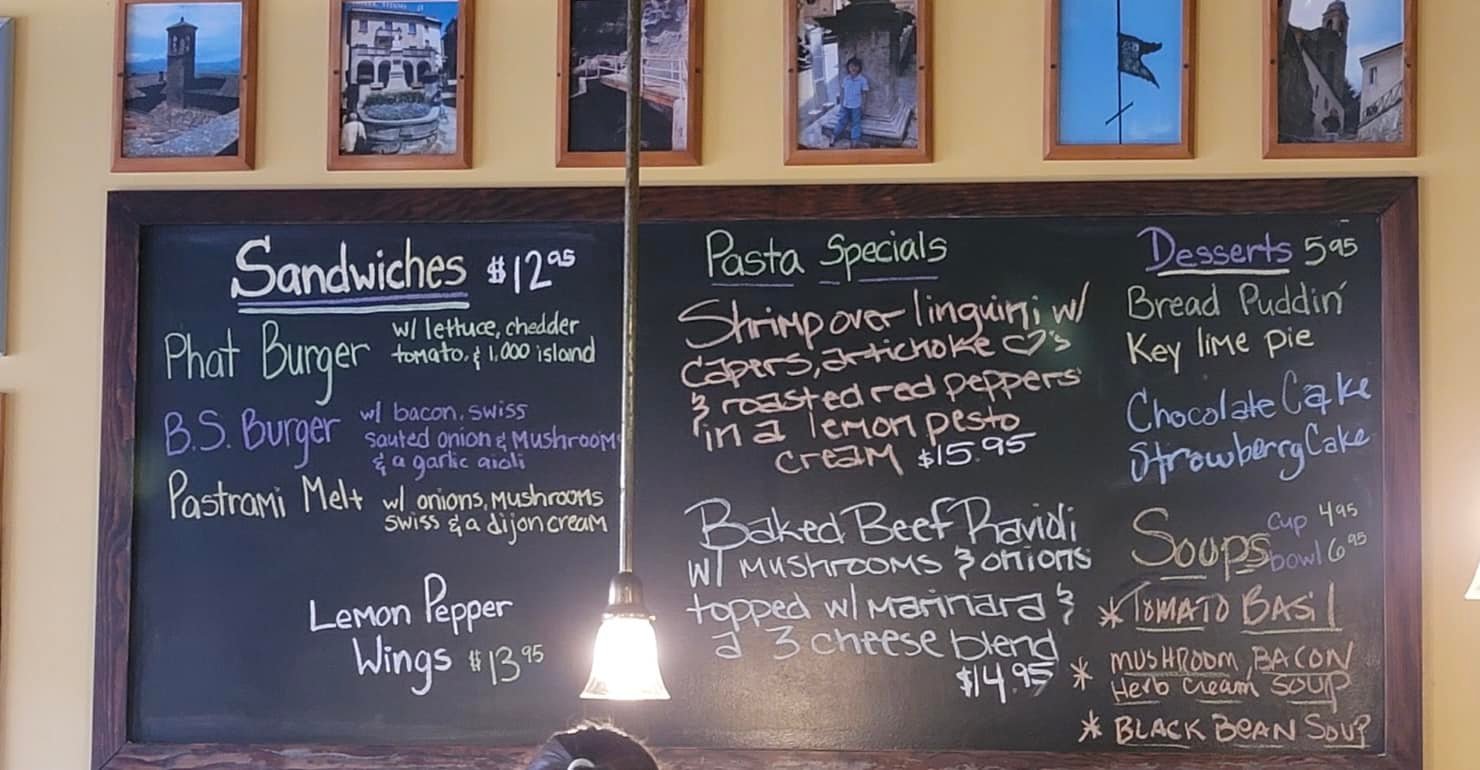 Sandwiches $12.95
Phat Burger w/ lettuce, chedder
tomato, & 1,000 island
B.S. Burger w/ bacon, swiss
sauted onion & Mushroom
& a garlic aioli
Pastrami Melt w/ onions, Mushrooms
swiss & a dijon cream
Lemon Pepper
Wings $13.95
Pasta Specials
Shrimp over linguini w/
capers, artichoke ♡'s
& roasted red peppers
in a lemon pesto
cream $15.95
Baked Beef Ravioli
w/ mushrooms & onions
topped w/ marinara &
a 3 cheese blend
$14.95
Desserts 5.95
Bread Puddin'
Key lime pie
Chocolate Cake
Strowberry Cake
Soups cup 4.95
bowl 6.95
*TOMATO BASIL
* MUSHROOM, BACON
Herb Cream SOUP
* BLACK BEAN SOUP